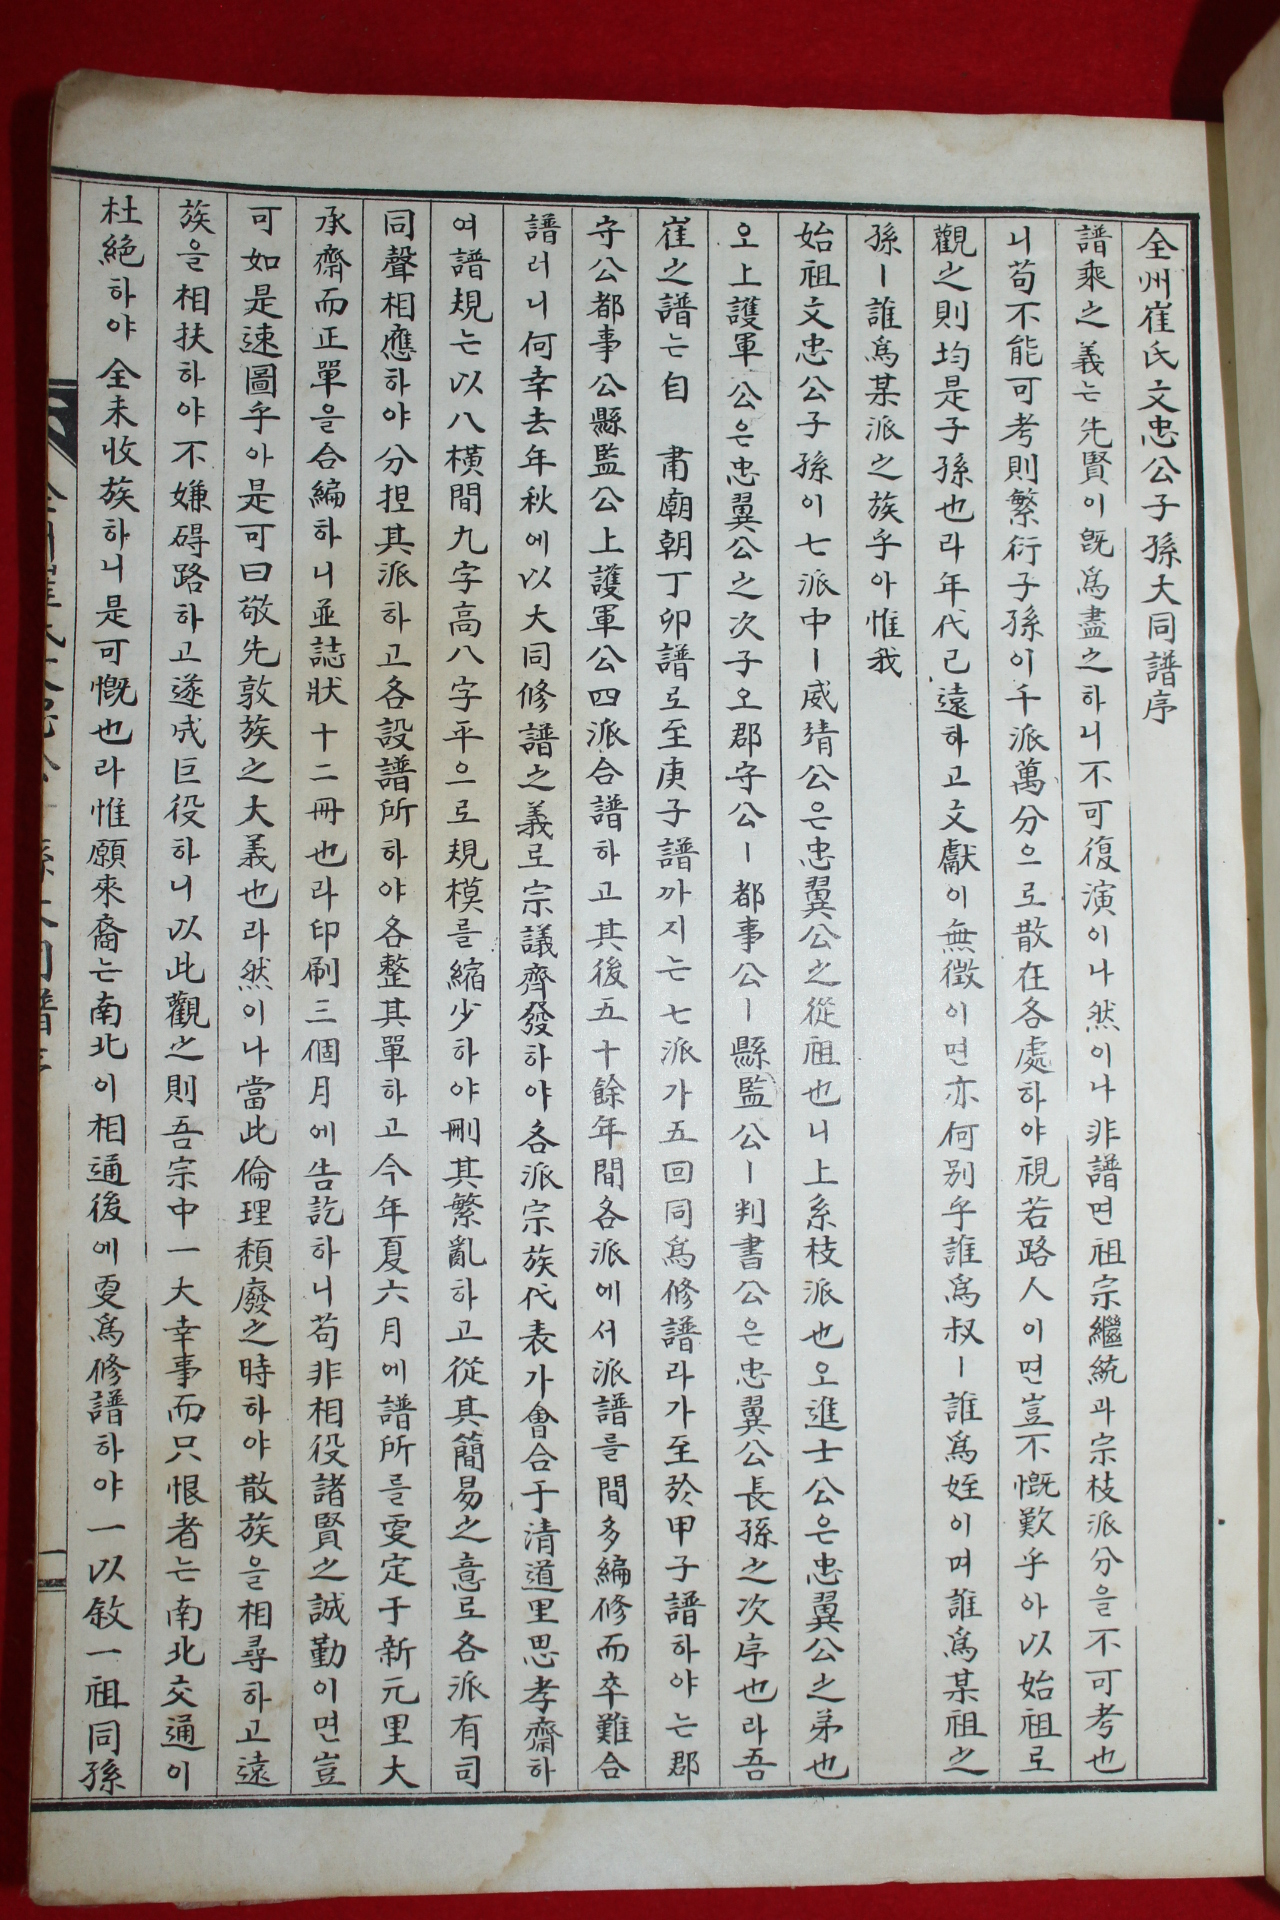 全州崔氏文忠公子孫大同譜序
譜乘之義는先賢이旣爲盡之하니不可復演이나然이나非譜면祖宗繼統과宗枝派分을不可考也
니苟不能可考則繁衍子孫이千派萬分으로散在各處하야視若路人이면豈不慨歎乎아以始祖로
觀之則均是子孫也라年代已遠하고文獻이無徵이면亦何別乎誰爲叔ㅣ誰爲姪이며誰爲某祖之
孫ㅣ誰爲某派之族乎아惟我
始祖文忠公子孫이七派中ㅣ威靖公은忠翼公之從祖也니上系枝派也오進士公은忠翼公之弟也
오上護軍公은忠翼公之次子오郡守公ㅣ都事公ㅣ縣監公ㅣ判書公은忠翼公長孫之次序也라吾
崔之譜는自 肅廟朝丁卯譜로至庚子譜까지는七派가五回同爲修譜라가至於甲子譜하야는郡
守公都事公縣監公上護軍公四派合譜하고其後五十餘年間各派에서派譜를間多編修而卒難合
譜러니何幸去年秋에以大同修譜之義로宗議齊發하야各派宗族代表가會合于清道里思孝齋하
여譜規는以八橫間九字高八字平으로規模를縮少하야刪其繁亂하고從其簡易之意로各派有司
同聲相應하야分担其派하고各設譜所하야各整其單하고今年夏六月에譜所를更定于新元里大
承齋而正單을合編하니並誌狀十二冊也라印刷三個月에告訖하니苟非相役諸賢之誠勤이면豈
可如是速圖乎아是可曰敬先敦族之大義也라然이나當此倫理頹廢之時하야散族을相尋하고遠
族을相扶하야不嫌碍路하고遂成巨役하니以此觀之則吾宗中一大幸事而只恨者는南北交通이
杜絶하야全未收族하니是可慨也라惟願來裔는南北이相通後에更爲修譜하야一以敘一祖同孫